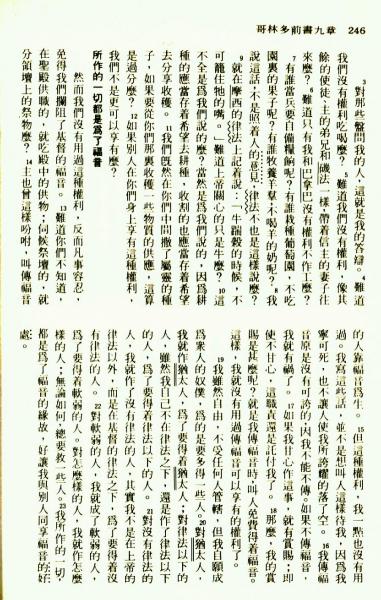 哥林多前書九章 246
3對那些盤問我的人，這就是我的答辯。4難道
我們沒有權利吃喝麼？5難道我們沒有權利，像其
餘的使徒、主的弟兄和磯法一樣，帶着信主的妻子往
來麼？6難道只有我和巴拿巴沒有權利不作工麼？
7有誰當兵要自備糧餉呢？有誰栽種葡萄園，不吃
園裏的果子呢？有誰牧養羊羣，不喝羊的奶呢？8我
說這話，不是照着人的意見；律法不也是這樣說麼？
9就在摩西的律法上記着說：「牛踹穀的時候，不
可籠住牠的嘴。」難道上帝關心的只是牛麼？10
不全是爲我們說的麼？當然是爲我們說的，因爲耕
種的應當存着希望去耕種，收割的也應當存着希望
去分享收穫。11我們既然在你們中間撒了屬靈的種
子，如果要從你們那裏收穫一些物質的供應，這算
是過分麼？12如果別人在你們身上享有這種權利，
我們不是更可以享有麼？
所作的一切都是爲了福音
然而我們沒有用過這種權利，反而凡事容忍，
免得我們攔阻了基督的福音。13難道你們不知道，
在聖殿供職的，就吃殿中的供物；伺候祭壇的，就
分領壇上的祭物麼？14主也曾這樣吩咐，叫傳福音
的人靠福音爲生。15但這種權利，我一點也沒有用
過。我寫這些話，並不是想叫人這樣待我，因爲我
寧可死，也不讓人使我所誇耀的落了空。16我傳福
音原是沒有可誇的，因爲我不能不傳。如果不傳福音，
我就有禍了。17如果我甘心作這事，就有賞賜；即
使不甘心，這職責還是託付我了。18那麼，我的賞
賜是甚麼呢？就是我傳福音時叫人免費得着福音。
這樣，我就沒有用過傳福音可以享有的權利了。
19我雖然自由，不受任何人管轄，但我自願成
爲衆人的奴僕，爲的是要多得一些人。20對猶太人，
我就作猶太人，爲了要得着猶太人；對律法以下的
人，雖然我自己不在律法之下，還是作了律法以下
的人，爲了要得着律法以下的人。21對沒有律法的
人，我就作了沒有律法的人，其實我不是在上帝的
律法以外，而是在基督的律法之下，爲了要得着沒
有律法的人。22對軟弱的人，我就成了軟弱的人，
爲了要得着軟弱的人。對怎麼樣的人，我就作怎麼
樣的人；無論如何，總要救一些人。23我所作的一切，
都是爲了福音的緣故，好讓我與別人同享福音的好
處。